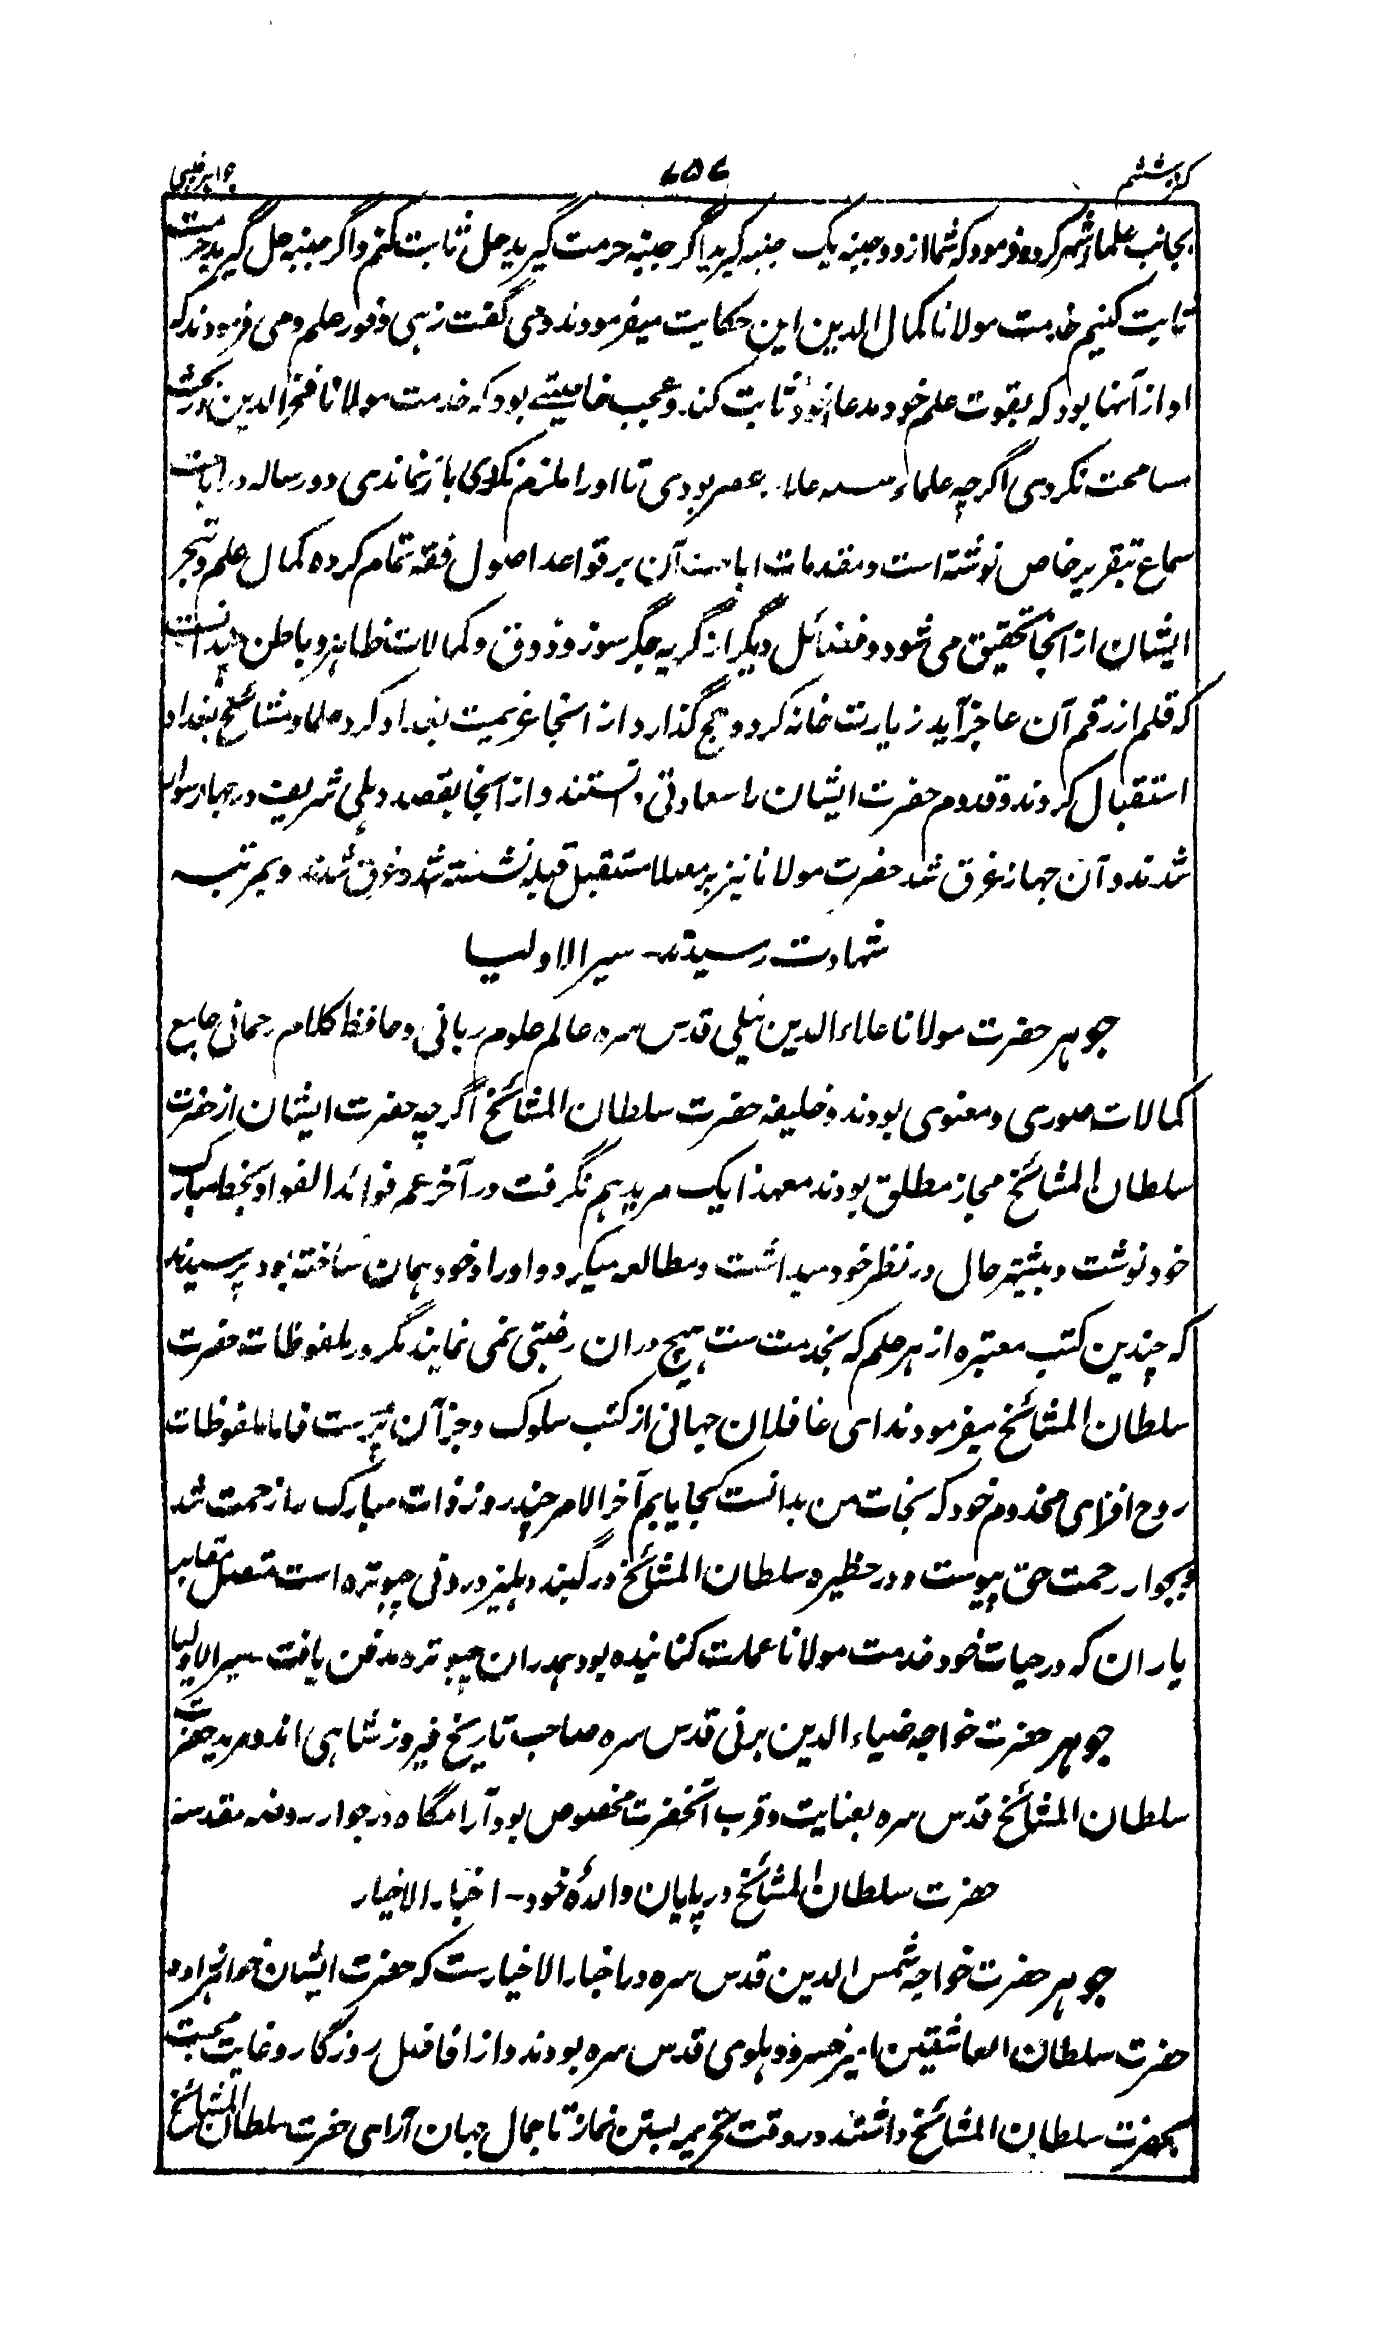 کنز ششم ۷۵۷ جواہر غیبی
بجانب علماء شہر کردہ فرمود کہ شما از دو جنبہ یک جنبہ گیرید اگر جنبہ حرمت گیرید حل ثابت کنم و اگر جنبہ حل گیرید حرمت
ثابت کنیم خدمت مولانا کمال الدین این حکایت میفرمودند و می گفت زہی وفور علم و می فرمودند کہ
او از آنہا بود کہ بقوت علم خود مدعا خود ثابت کند و عجب خاصیتے بود کہ خدمت مولانا فخر الدین در بحث
مسامحت نکردی اگرچہ علماء عصر بودی تا او را ملزم نکردی باز نماندی دو رسالہ در اباحت
سماع بتقریر خاص نوشتہ است و مقدمات اباحت آن بر قواعد اصول فقہ تمام کردہ کمال علم و تبحر
ایشان از انجا تحقیق می شود و فضائل دیگر از گریہ جگر سوز و ذوق و کمالات ظاہر و باطن چندانست
کہ قلم از رقم آن عاجز آید زیارت خانہ کرد و حج گذارد از انجا عزیمت بغداد کرد علما و مشائخ بغداد
استقبال کردند و قدوم حضرت ایشان را سعادتی دانستند و از انجا بقصد دہلی شریف در جہاز سوار
شدند و آن جہاز غرق شد حضرت مولانا نیز بر مصلا مستقبل قبلہ نشستہ شد و غرق شدند و بمرتبہ
شہادت رسیدند۔ سیر الاولیا
جوہر حضرت مولانا علاء الدین نیلی قدس سرہ عالم علوم ربانی و حافظ کلام رحمانی جامع
کمالات صوری و معنوی بودند و خلیفہ حضرت سلطان المشائخ اگرچہ حضرت ایشان از حضرت
سلطان المشائخ مجاز مطلق بودند معہذا یک مرید ہم نگرفت در آخر عمر فوائد الفواد بخط مبارک
خود نوشت و بیشتر حال در نظر خود میداشت و مطالعہ میکرد و اوراد خود ہمان ساختہ بود پرسیدند
کہ چندین کتب معتبرہ از ہر علم کہ بخدمت ست ہیچ دران رغبتی نمی نمایند مگر در ملفوظات حضرت
سلطان المشائخ میفرمودند ای غافلان جہانی از کتب سلوک و جز آن پر ست فاما ملفوظات
روح افزای مخدوم خود کہ نجات من بدانست کجا یابم آخر الامر چند روز ذات مبارک را زحمت شد
و بجوار رحمت حق پیوست و در حظیرہ سلطان المشائخ در گنبد دہلیز درونی چبوترہ است متصل مقابر
یاران کہ در حیات خود خدمت مولانا عمارت کنانیدہ بود ہمدران چبوترہ مدفن یافت۔ سیر الاولیا
جوہر حضرت خواجہ ضیاء الدین برنی قدس سرہ صاحب تاریخ فیروز شاہی اند و مرید حضرت
سلطان المشائخ قدس سرہ بعنایت و قرب آنحضرت مخصوص بود آرامگاہ در جوار روضہ مقدسہ
حضرت سلطان المشائخ در پایان والدہ خود۔ اخبار الاخیار
جوہر حضرت خواجہ شمس الدین قدس سرہ در اخبار الاخیارست کہ حضرت ایشان خواہرزادہ
حضرت سلطان العاشقین امیر خسرو دہلوی قدس سرہ بودند و از افاضل روزگار و غایت محبت
بحضرت سلطان المشائخ داشتند در وقت تحریمہ بستن نماز تا جمال جہان آرای حضرت سلطان المشائخ